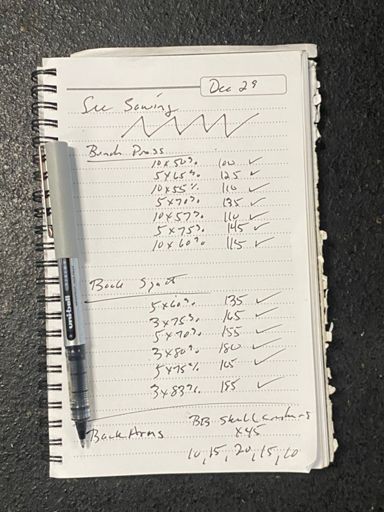 Dec 29
See Sawing
Bench Press
10x50% 100 ✓
5x65% 125 ✓
10x55% 110 ✓
5x70% 135 ✓
10x57% 110 ✓
5x75% 145 ✓
10x60% 115 ✓
Back Squatt
5x60% 135 ✓
3x75% 165 ✓
5x70% 155 ✓
3x80% 180 ✓
5x75% 165 ✓
3x83% 185 ✓
Back Arms
BB Skull Crushers
x45
10, 15, 20, 15, 10
uniball